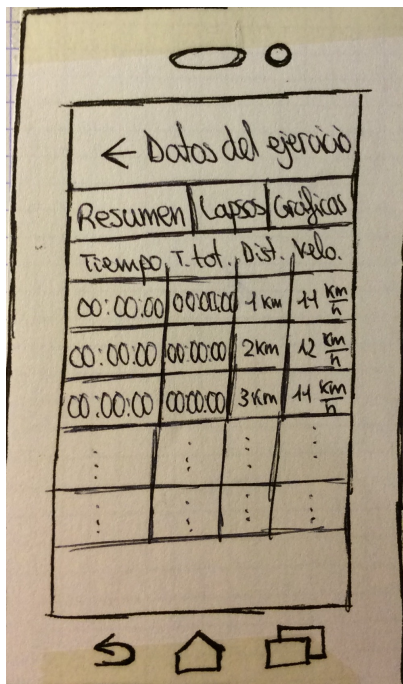 ← Datos del ejercicio
Resumen Lapsos Gráficas
Tiempo T.tot. Dist. Velo.
00:00:00 00:00:00 1 Km 11 Km/h
00:00:00 00:00:00 2 Km 12 Km/h
00:00:00 00:00:00 3 Km 11 Km/h